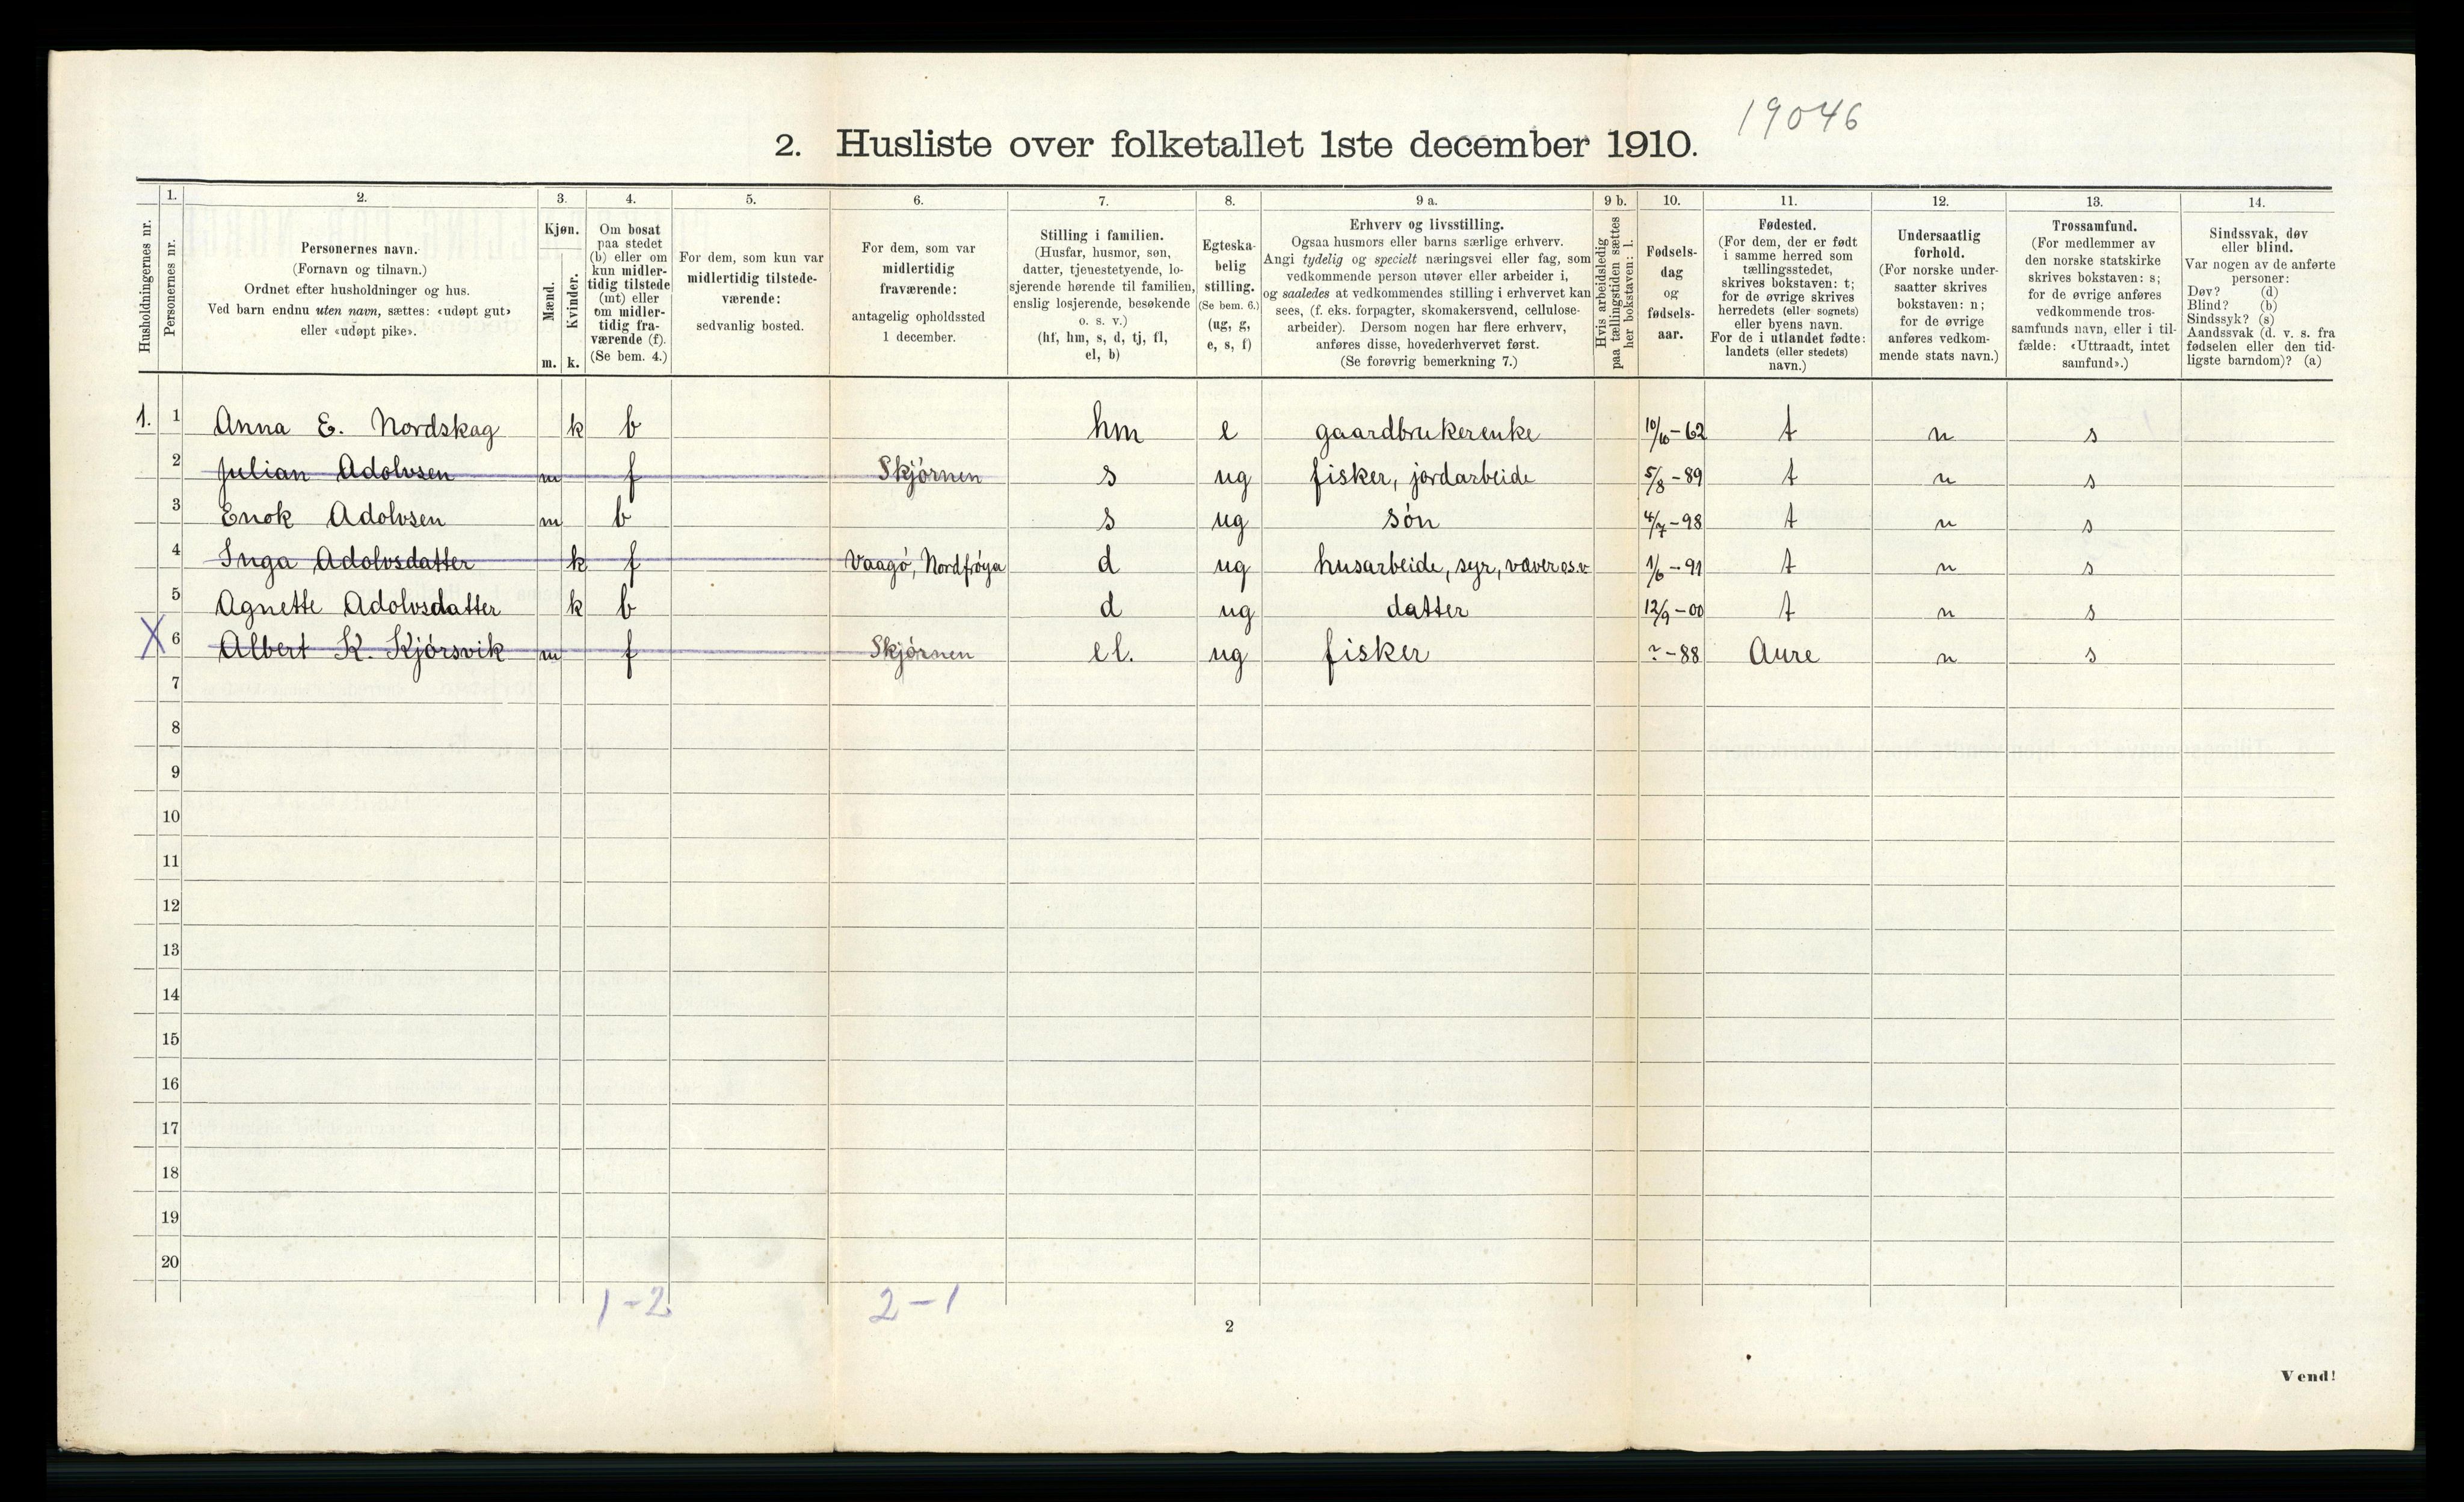 19046
2. Husliste over folketallet 1ste december 1910.
Husholdningernes nr.
1.
Personernes nr.
2.
Personernes navn.
(Fornavn og tilnavn.)
Ordnet efter husholdninger og hus.
Ved barn endnu uten navn, sættes: «udøpt gut»
eller «udøpt pike».
3.
Kjøn.
Mænd.
Kvinder.
m. k.
4.
Om bosat
paa stedet
(b) eller om
kun midler-
tidig tilstede
(mt) eller
om midler-
tidig fra-
værende (f).
(Se bem. 4.)
5.
For dem, som kun var
midlertidig tilstede-
værende:
sedvanlig bosted.
6.
For dem, som var
midlertidig
fraværende:
antagelig opholdssted
1 december.
7.
Stilling i familien.
(Husfar, husmor, søn,
datter, tjenestetyende, lo-
sjerende hørende til familien,
enslig losjerende, besøkende
o. s. v.)
(hf, hm, s, d, tj, fl,
el, b)
8.
Egteska-
belig
stilling.
(Se bem. 6.)
(ug, g,
e, s, f)
9 a.
Erhverv og livsstilling.
Ogsaa husmors eller barns særlige erhverv.
Angi tydelig og specielt næringsvei eller fag, som
vedkommende person utøver eller arbeider i,
og saaledes at vedkommendes stilling i erhvervet kan
sees, (f. eks. forpagter, skomakersvend, cellulose-
arbeider). Dersom nogen har flere erhverv,
anføres disse, hovederhvervet først.
(Se forøvrig bemerkning 7.)
9 b.
Hvis arbeidsledig
paa tællingstiden sættes
her bokstaven: l.
10.
Fødsels-
dag
og
fødsels-
aar.
11.
Fødested.
(For dem, der er født
i samme herred som
tællingsstedet,
skrives bokstaven: t;
for de øvrige skrives
herredets (eller sognets)
eller byens navn.
For de i utlandet fødte:
landets (eller stedets)
navn.)
12.
Undersaatlig
forhold.
(For norske under-
saatter skrives
bokstaven: n;
for de øvrige
anføres vedkom-
mende stats navn.)
13.
Trossamfund.
(For medlemmer av
den norske statskirke
skrives bokstaven: s;
for de øvrige anføres
vedkommende tros-
samfunds navn, eller i til-
fælde: «Uttraadt, intet
samfund».)
14.
Sindssvak, døv
eller blind.
Var nogen av de anførte
personer:
Døv? (d)
Blind? (b)
Sindssyk? (s)
Aandssvak (d. v. s. fra
fødselen eller den tid-
ligste barndom)? (a)
1. 1 Anna E. Nordskag k b hm e gaardbrukerenke 10/10-62 t n s
2 Julian Adolvsen m f Skjørnen s ug fisker, jordarbeide 5/8-89 t n s
3 Enok Adolvsen m b s ug søn 4/7-98 t n s
4 Inga Adolvsdatter k f Vaagø, Nordfrøya d ug husarbeide, syr, væver o s.v 1/6-91 t n s
5 Agnette Adolvsdatter k b d ug datter 12/9-00 t n s
X 6 Albert K. Kjørsvik m f Skjørnen el. ug fisker ?-88 Aure n s
7
8
9
10
11
12
13
14
15
16
17
18
19
20
1-2 2-1
2
Vend!